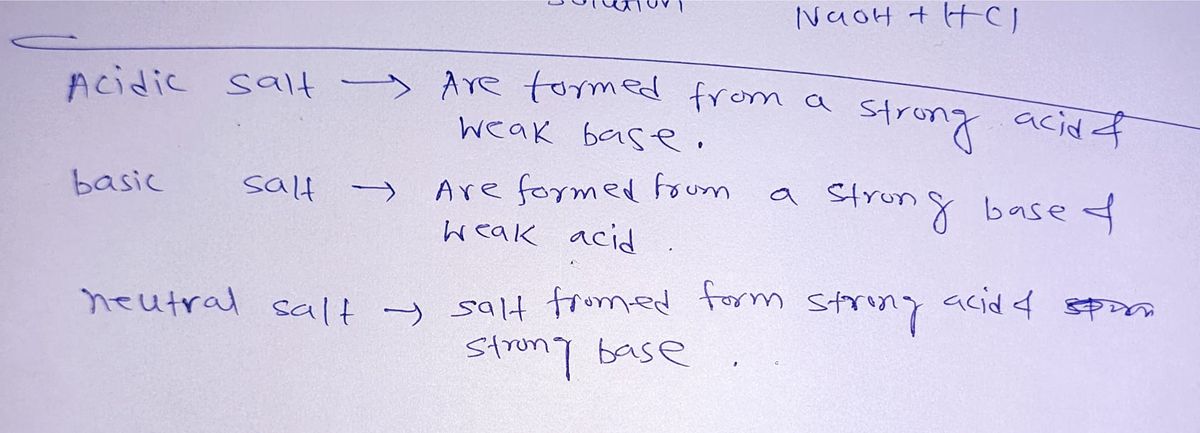 NaOH + HCl
Acidic salt → Are formed from a strong acid &
weak base.
basic salt → Are formed from a strong base &
weak acid.
neutral salt → salt fromed form strong acid &
strong base.